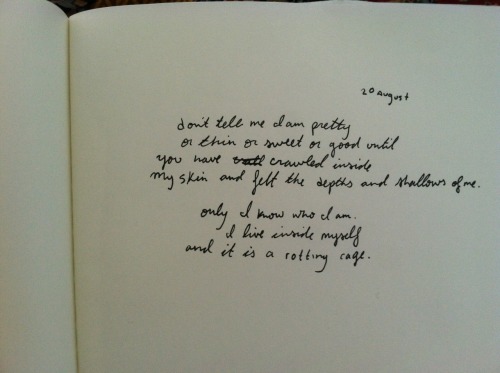 20 August
don't tell me I am pretty
or thin or sweet or good until
you have crawled inside
my skin and felt the depths and shallows of me.
only I know who I am.
I live inside myself
and it is a rotting cage.